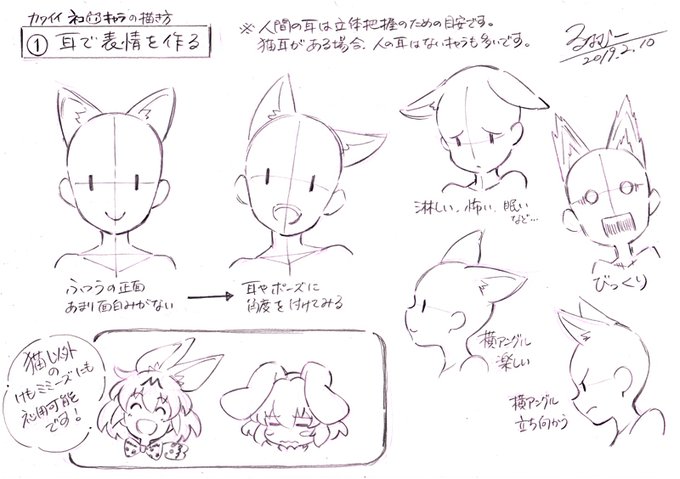 カワイイ ネコミミキャラの描き方
① 耳で表情を作る
※人間の耳は立体把握のための目安です。
猫耳がある場合、人の耳はないキャラも多いです。
2019.2.10
淋しい、怖い、眠い
など…
びっくり
ふつうの正面
あまり面白みがない
耳やポーズに
角度を付けてみる
横アングル
楽しい
横アングル
立ち向かう
猫以外
の
けもミミーズにも
応用可能
です!